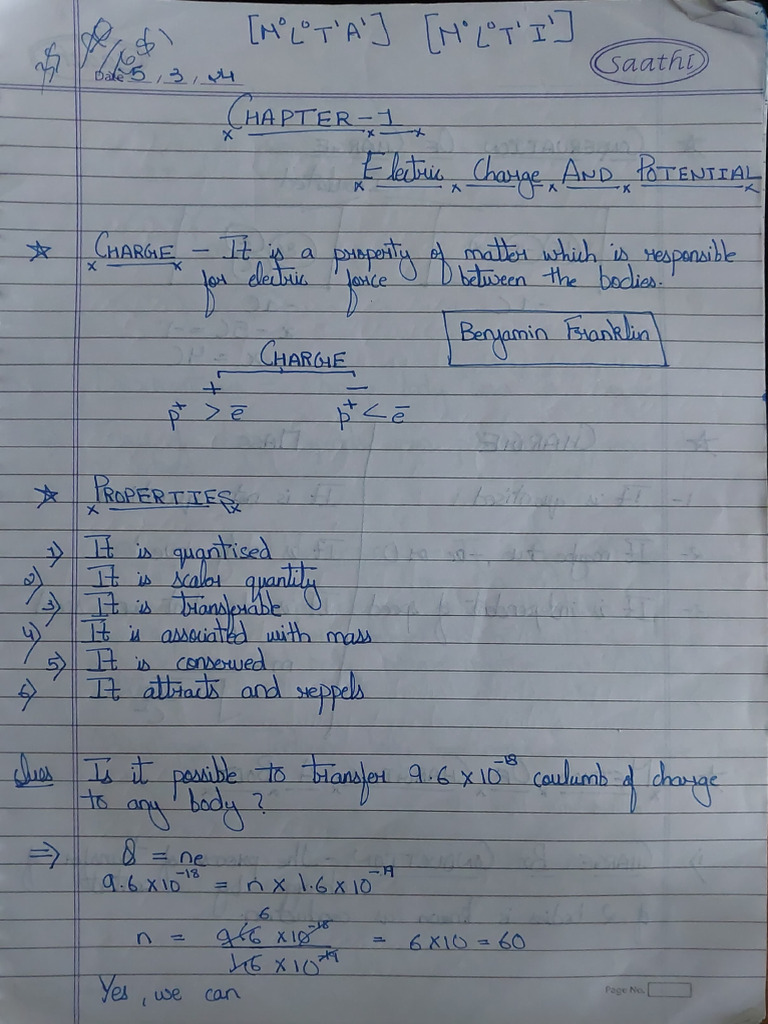 [M°L°T'A'] [M°L°T'I']
Saathi
Date 5, 3, 24
CHAPTER-1
Electric Charge AND POTENTIAL
CHARGE - It is a property of matter which is responsible
for electric force between the bodies.
Benjamin Franklin
CHARGE
+ −
p⁺ > e̅ p⁺ < e̅
PROPERTIES
1) It is quantised
2) It is scalar quantity
3) It is transferable
4) It is associated with mass
5) It is conserved
6) It attracts and reppels
Ques Is it possible to transfer 9.6 x 10⁻¹⁸ coulumb of charge
to any body ?
⇒ Q = ne
9.6 x 10⁻¹⁸ = n x 1.6 x 10⁻¹⁹
6
n = 9.6 x 10⁻¹⁸ = 6 x 10 = 60
1.6 x 10⁻¹⁹
Yes, we can
Page No.